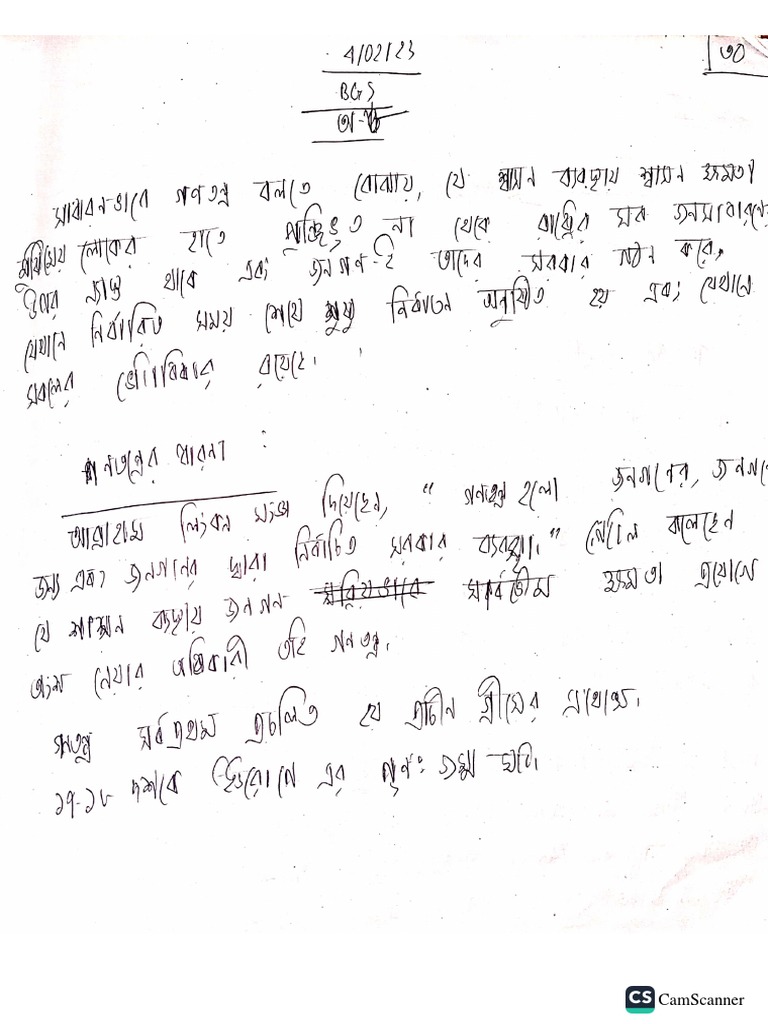 4/02/23
৩০
BGS
সাধারনভাবে গণতন্ত্র বলতে বোঝায়, যে শাসন ব্যবস্থায় শাসন ক্ষমতা
মুষ্টিমেয় লোকের হাতে পুঞ্জিভুত না থেকে রাষ্ট্রের সব জনসাধারণের
উপর ন্যাস্ত থাকে এবং জনগণ-ই তাদের সরকার গঠন করে,
যেখানে নির্ধারিত সময় শেষে নির্বাচন অনুষ্ঠিত হয় এবং যেখানে
সকলের ভোটাধিকার রয়েছে।
গণতন্ত্রের ধারনা :
আব্রাহাম লিংকন সংজ্ঞা দিয়েছেন, “ গণতন্ত্র হলো জনগনের, জনগনের
জন্য এবং জনগনের দ্বারা নির্বাচিত সরকার ব্যবস্থা।” বলেছেন
যে শাসন ব্যবস্থায় জনগন সক্রিয়ভাবে সার্বভৌম ক্ষমতা প্রয়োগে
অংশ নেয়ার অধিকারী তাই গনতন্ত্র।
গণতন্ত্র সর্বপ্রথম প্রচলিত হয় প্রাচীন গ্রীসের এথেন্সে।
১৭-১৮ দশকে ইউরোপে এর পূণঃ জন্ম ঘটে।
CS CamScanner